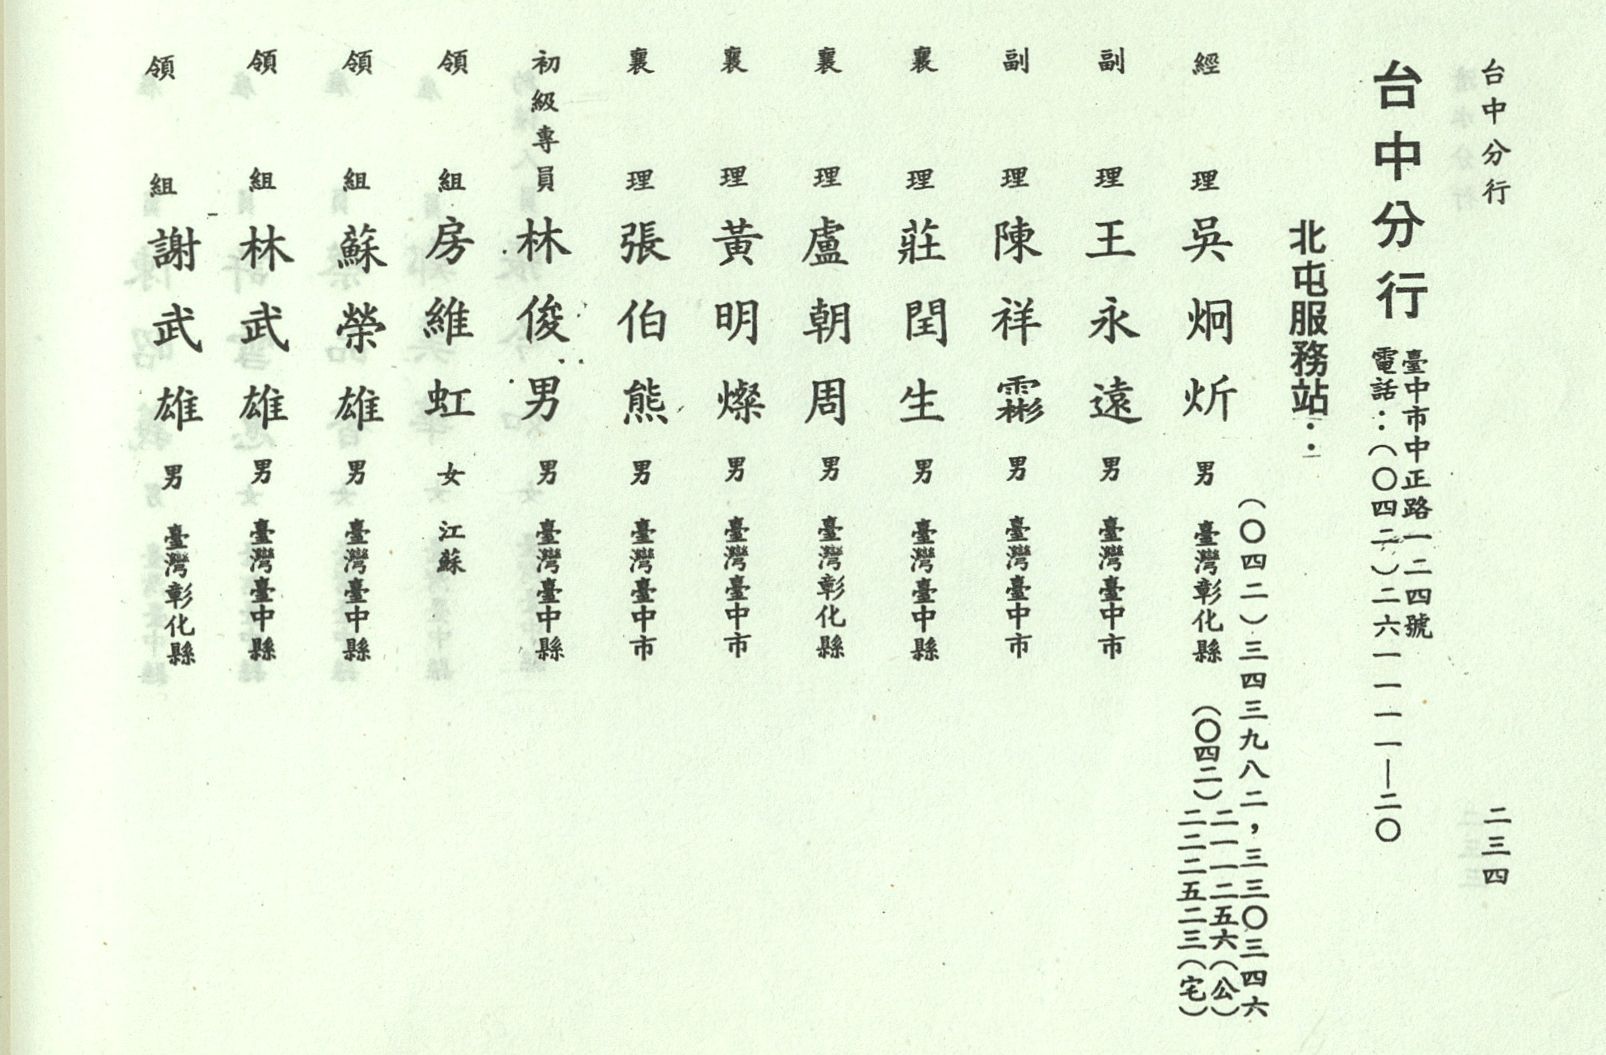 台中分行
二三四
台中分行
臺中市中正路一二四號
電話：（〇四二）二六一一一一—二〇
北屯服務站：
（〇四二）三四三九八二，三三〇三四六
經理 吳炯炘 男 臺灣彰化縣 （〇四二）
二一一二五六（公）
二二二五二三（宅）
副理 王永遠 男 臺灣臺中市
副理 陳祥霦 男 臺灣臺中市
襄理 莊閏生 男 臺灣臺中縣
襄理 盧朝周 男 臺灣彰化縣
襄理 黃明燦 男 臺灣臺中市
襄理 張伯熊 男 臺灣臺中市
初級專員 林俊男 男 臺灣臺中縣
領組 房維虹 女 江蘇
領組 蘇榮雄 男 臺灣臺中縣
領組 林武雄 男 臺灣臺中縣
領組 謝武雄 男 臺灣彰化縣